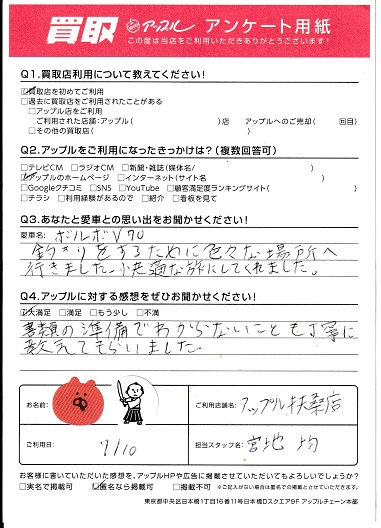 買取 アップル アンケート用紙
この度は当店をご利用いただきありがとうございます!
Q1.買取店利用について教えてください!
☑買取店を初めてご利用
□過去に買取店をご利用されたことがある
□アップル店をご利用
ご利用された店舗:アップル( )店 アップルへのご売却( 回目)
□その他の買取店( )
Q2.アップルをご利用になったきっかけは?(複数回答可)
□テレビCM □ラジオCM □新聞・雑誌(媒体名/ )
☑アップルのホームページ □インターネット(サイト名 )
□Googleクチコミ □SNS □YouTube □顧客満足度ランキングサイト( )
□チラシ □利用経験があるので □紹介 □看板を見て
Q3.あなたと愛車との思い出をお聞かせください!
愛車名: ボルボV70
釣りをするために色々な場所へ
行きました。快適な旅にしてくれました。
Q4.アップルに対する感想をぜひお聞かせください!
☑大満足 □満足 □もう少し □不満
書類の準備でわからないことも丁寧に
教えてもらいました。
お名前:
ご利用店舗名: アップル扶桑店
ご利用日: 7/10
担当スタッフ名: 宮地 均
お客様に書いていただいた感想を、アップルHPや広告に掲載させていただいてもよろしいでしょうか?
□実名で掲載可 ☑匿名なら掲載可 □掲載不可 ※ご記入がない場合は匿名での掲載とさせていただきます。
東京都中央区日本橋1丁目16番11号日本橋Dスクエア9F アップルチェーン本部